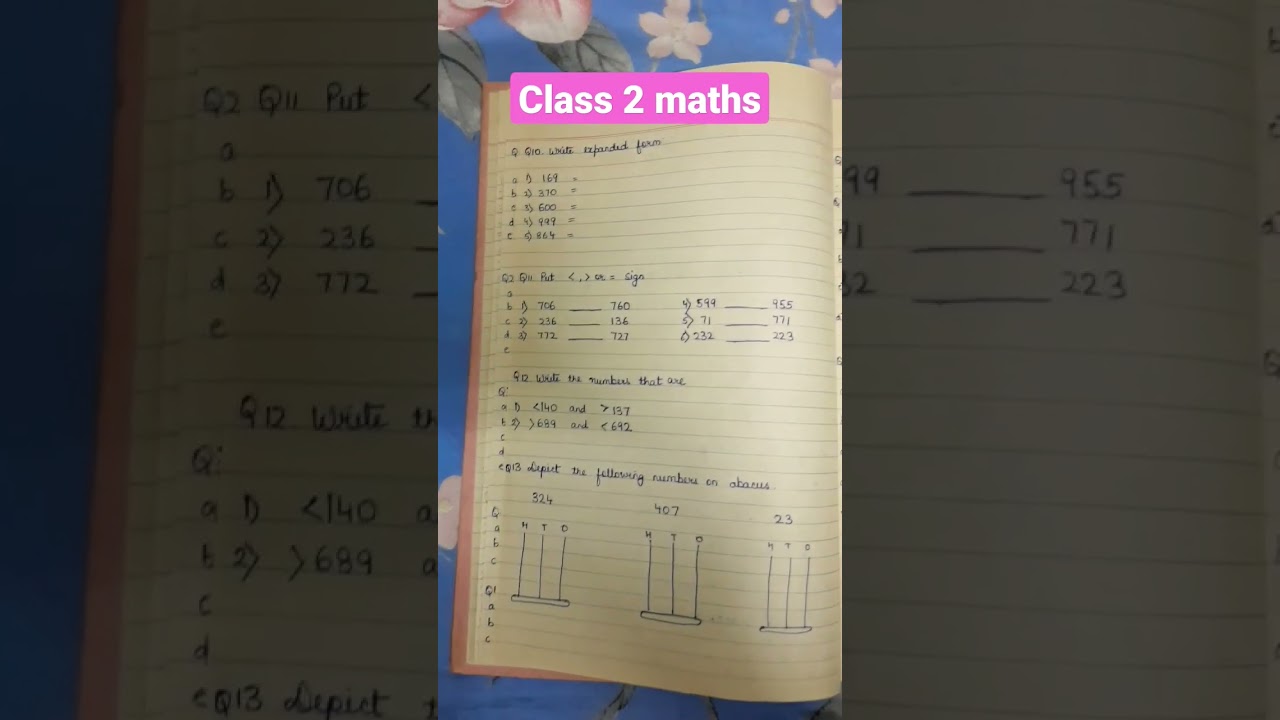 Class 2 maths
Q Q10. Write expanded form
a 1) 169 =
b 2) 370 =
c 3) 600 =
d 4) 999 =
e 5) 864 =
Q2 Q11 Put < , > or = sign
a
b 1) 706 ____ 760 4) 599 ____ 955
c 2) 236 ____ 136 5) 71 ____ 771
d 3) 772 ____ 727 6) 232 ____ 223
e
Q12 Write the numbers that are
Q:
a 1) <140 and >137
b 2) >689 and <692
c
d
e Q13 Depict the following numbers on abacus.
324 407 23
Q
a H T O H T O H T O
b
c
Q1
a
b
c